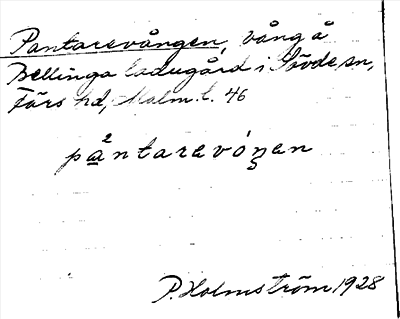 Pantarevången, vång å
Bellinga ladugård i Sövde sn,
Färs hd, Malm. l. 46
pa²ntarevóŋen
P. Holmström 1928